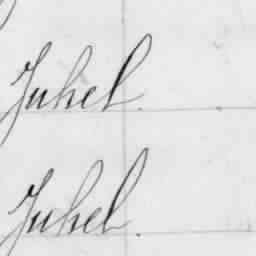 Juhel.
Juhel.